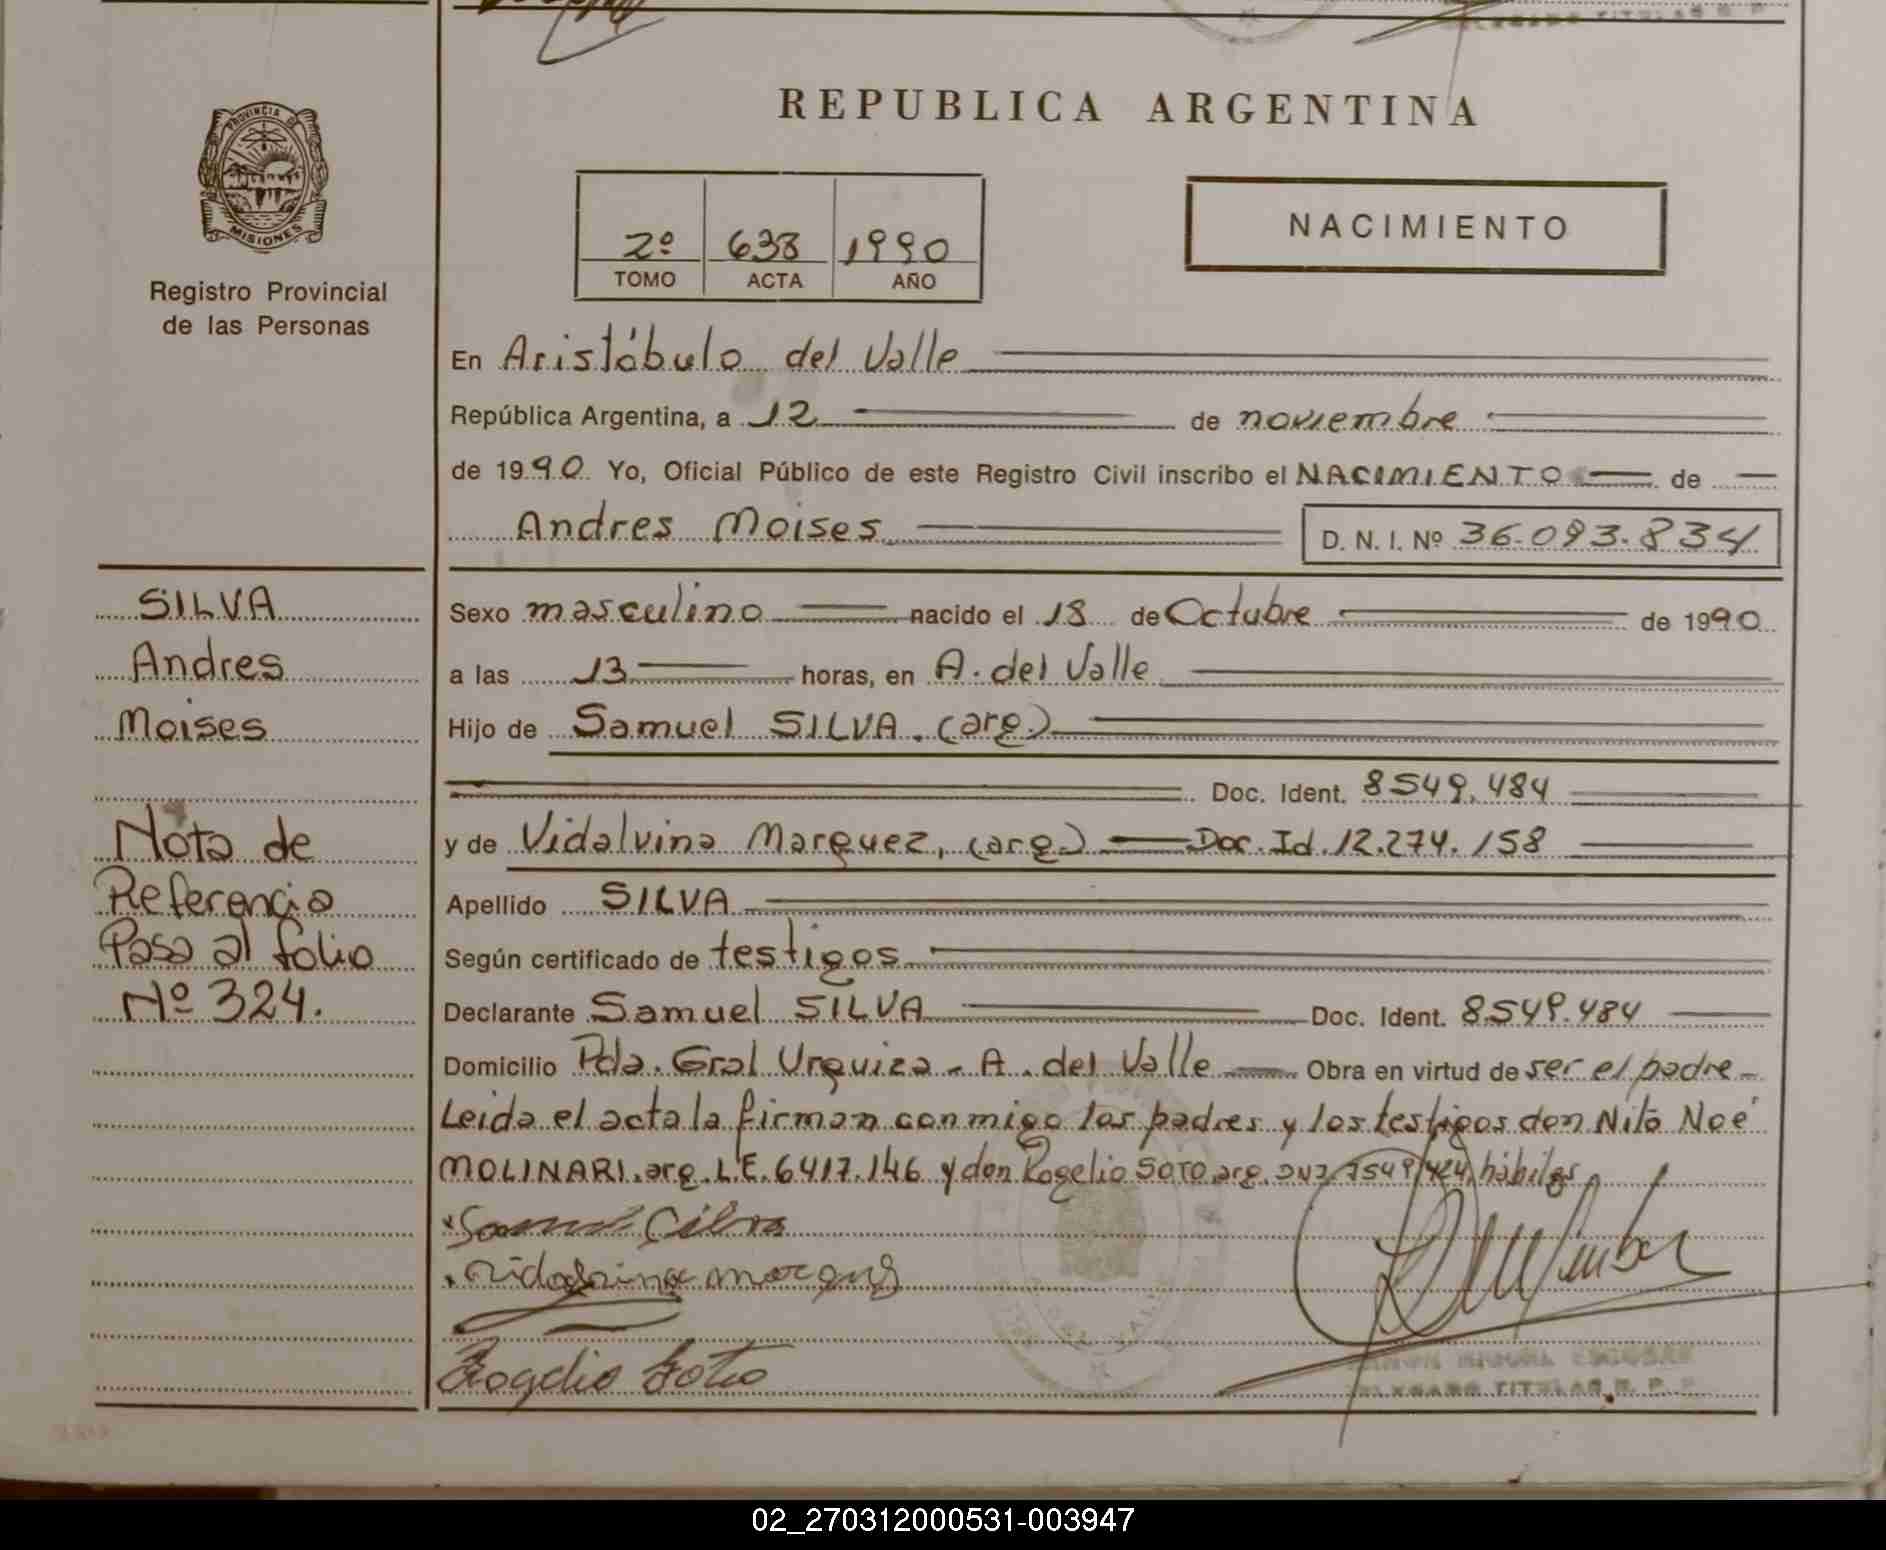 REPUBLICA ARGENTINA
PROVINCIA DE
MISIONES
Registro Provincial
de las Personas
2º 638 1990
TOMO ACTA AÑO
NACIMIENTO
En Aristóbulo del Valle
República Argentina, a 12 de noviembre
de 1990 Yo, Oficial Público de este Registro Civil inscribo el NACIMIENTO de
Andres Moises D. N. I. Nº 36.093.834
SILVA
Andres
Moises
Nota de
Referencia
Pasa al folio
Nº 324.
Sexo masculino nacido el 18 de Octubre de 1990
a las 13 horas, en A. del Valle
Hijo de Samuel SILVA. (arg.)
Doc. Ident. 8549.484
y de Vidalvina Marquez, (arg.) Doc. Id. 12.274.158
Apellido SILVA
Según certificado de testigos
Declarante Samuel SILVA Doc. Ident. 8.549.484
Domicilio Pda. Gral Urquiza - A. del Valle Obra en virtud de ser el padre -
Leida el acta la firman conmigo los padres y los testigos don Nito Noé
MOLINARI. arg. L.E. 6417.146 y don Rogelio SOTO arg. DNI 7549424, hábiles
Silva
Rogelio Soto
DELEGADO TITULAR R. P. P.
02_270312000531-003947